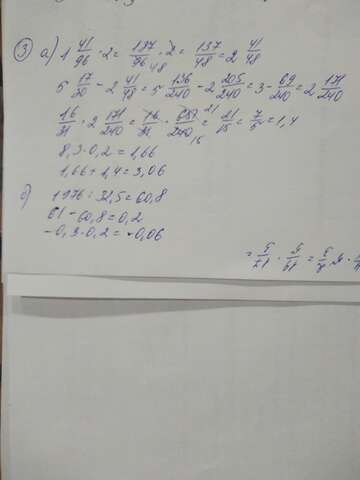 ③ а) 1 41/96 · 2 = 137/96 · 2 = 137/48 = 2 41/48
5 17/30 - 2 41/48 = 5 136/240 - 2 205/240 = 3 - 69/240 = 2 171/240
16/31 · 2 171/240 = 16/31 · 651/240 = 21/15 = 7/5 = 1,4
8,3 · 0,2 = 1,66
1,66 + 1,4 = 3,06
б) 1976 : 32,5 = 60,8
61 - 60,8 = 0,2
-0,3 · 0,2 = -0,06